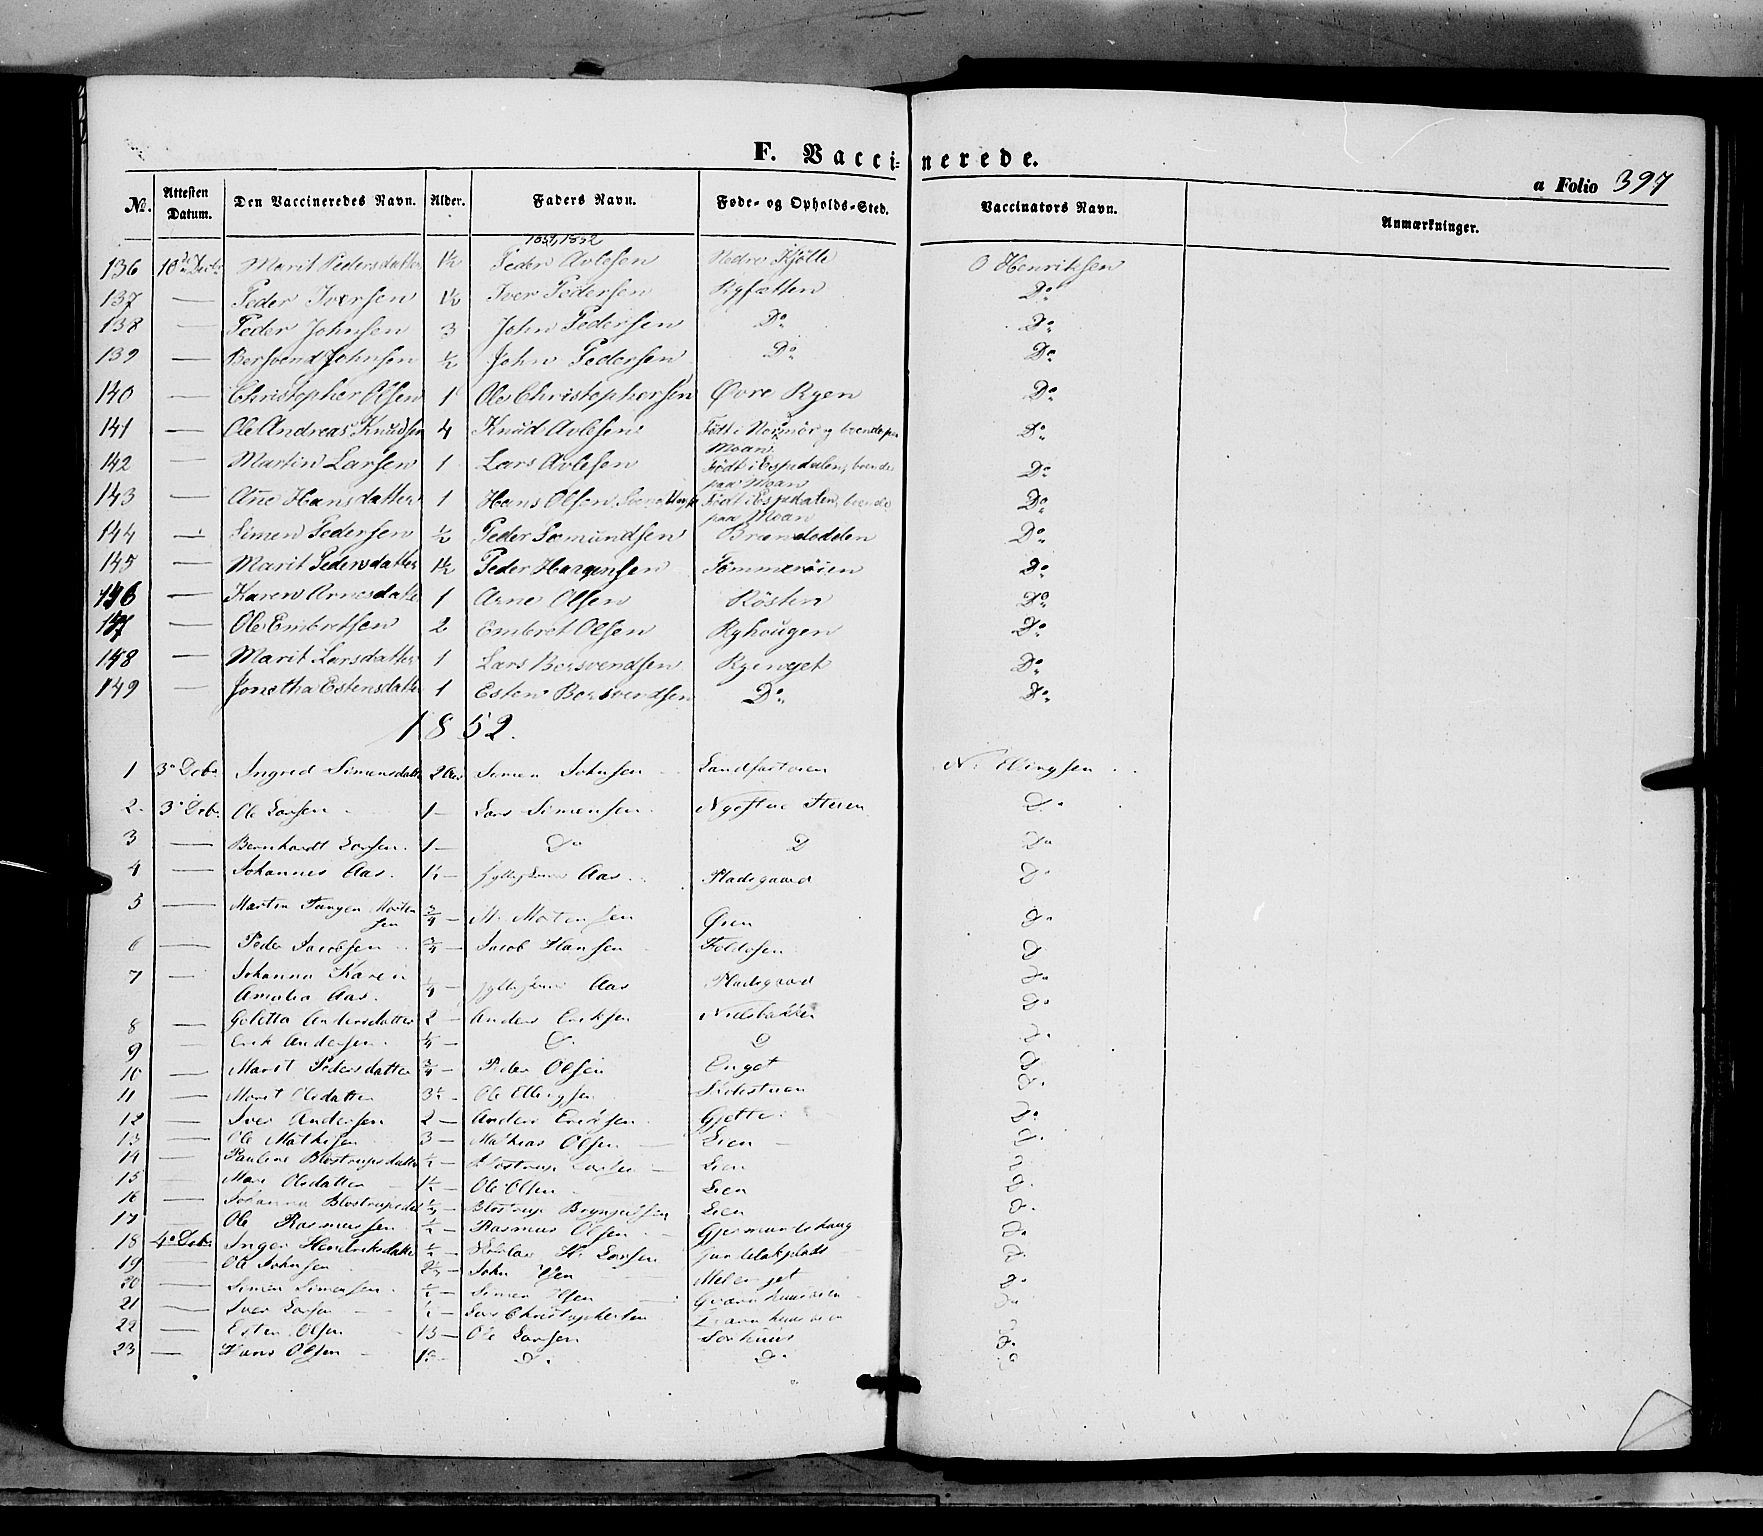 F. Vaccinerede.
a Folio 397
№. Attesten Datum. Den Vaccineredes Navn. Alder. Faders Navn. Føde- og Opholds-Sted. Vaccinators Navn. Anmærkninger.
1851, 1852
136 Marit Pedersdatter 1½ Peder Avlesen Nedre Kjölle O Henriksen
137 — Peder Iversen 1½ Iver Pedersen Ryfætten Do
138 — Peder Johnsen 3 John Pedersen Do Do
139 — Bersvend Johnsen ½ John Pedersen Do Do
140 — Christopher Olsen 1 Ole Christophersen Øvre Ryen Do
141 — Ole Andreas Knudsen 4 Knud Avlesen Født i Normör og boende paa Moan Do
142 — Martin Larsen 1 Lars Avlesen Født i Espedalen, boende paa Moan Do
143 — Ane Hansdatter 1 Hans Olsen Født i Espedalen, boende paa Moan Do
144 — Simen Pedersen ½ Peder Somundsen Do
145 — Marit Pedersdatter 1½ Peder Haagensen Tömmeröien Do
146 — Karen Arnesdatter 1 Arne Olsen Rösten Do
147 — Ole Embretsen 2 Embret Olsen Ryhougen Do
148 — Marit Larsdatter 1 Lars Bersvendsen Ryenget Do
149 — Jonetha Estensdatter 1 Esten Bersvendsen Do Do
1852.
1 3 Decbr Ingred Simensdatter 2 Simen Johnsen Sandfartoien N. Ellingsen
2 3 Decbr Ole Larsen 1 — Lars Simensen Do
3 — Bernhardt Larsen 1 — Do D Do
4 — Johannes Aas. 1½ — Aas Pladsgaard Do
5 — Martin Tangen Morten
sen ¾ — M. Mortensen Øien Do
6 — Peder Jacobsen ¾ — Jacob Hansen Foldosen Do
7 — Johanna Karen
Amalia Aas. ¼ — Aas Pladsgaard Do
8 — Goletta Andersdatter 2 — Anders Eriksen Nielsbakken Do
9 — Erik Andersen ¼ — D D Do
10 — Marit Pedersdatter ¾ — Peder Olsen Enget Do
11 — Marit Olsdatter 3½ — Ole Ellingsen Sidestuen Do
12 — Iver Andersen 2 — Anders Ericksen Gjette Do
13 — Ole Mathisen 3 — Mathias Olsen Lien Do
14 — Pauline Blostrupsdatter ½ — Blostrup Lien Do
15 — Mari Olsdatter 1½ — Ole Olsen Lien Do
16 — Johanna Blostrupsdatter ½ — Blostrup Brynjulfsen Lien Do
17 Ole Rasmussen ½ — Rasmus Olsen Gjermundshaug Do
18 4 Decbr Inger Hendriksdatter ½ — Larsen Do
19 — Ole Johnsen 2½ — John Melenget Do
20 — Simen Simensen ½ — Simen Olsen Do
21 — Iver Larsen ½ — Lars Christophersen Do
22 — Esten Olsen 13 — Ole Larsen Do
23 — Hans Olsen Do Do Do